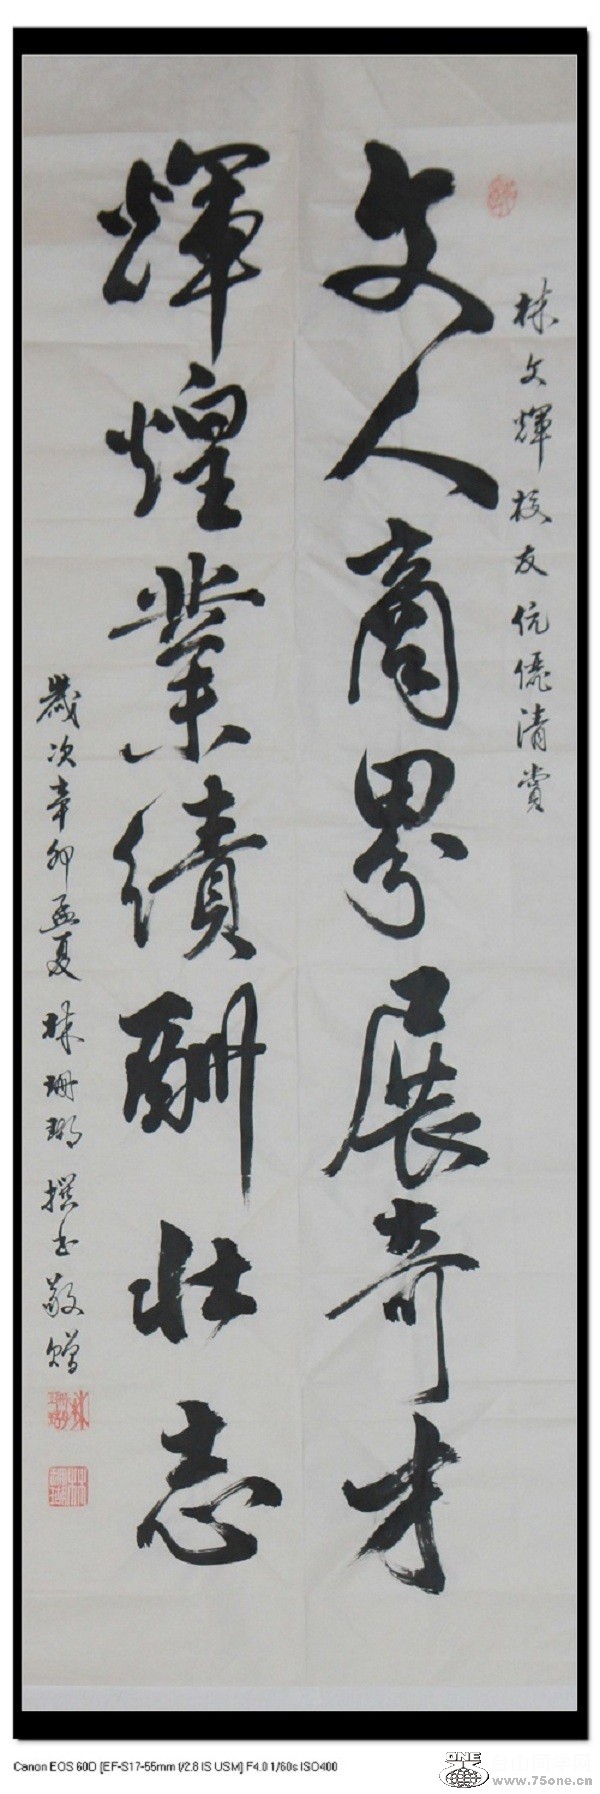 林文輝校友伉儷清赏
文人商界展奇才
輝煌業績酬壮志
歲次辛卯孟夏 林珊瑚撰书敬贈
Canon EOS 60D [EF-S17-55mm f/2.8 IS USM] F4.0 1/60s ISO400
ONE 台山同学网
www.75one.cn